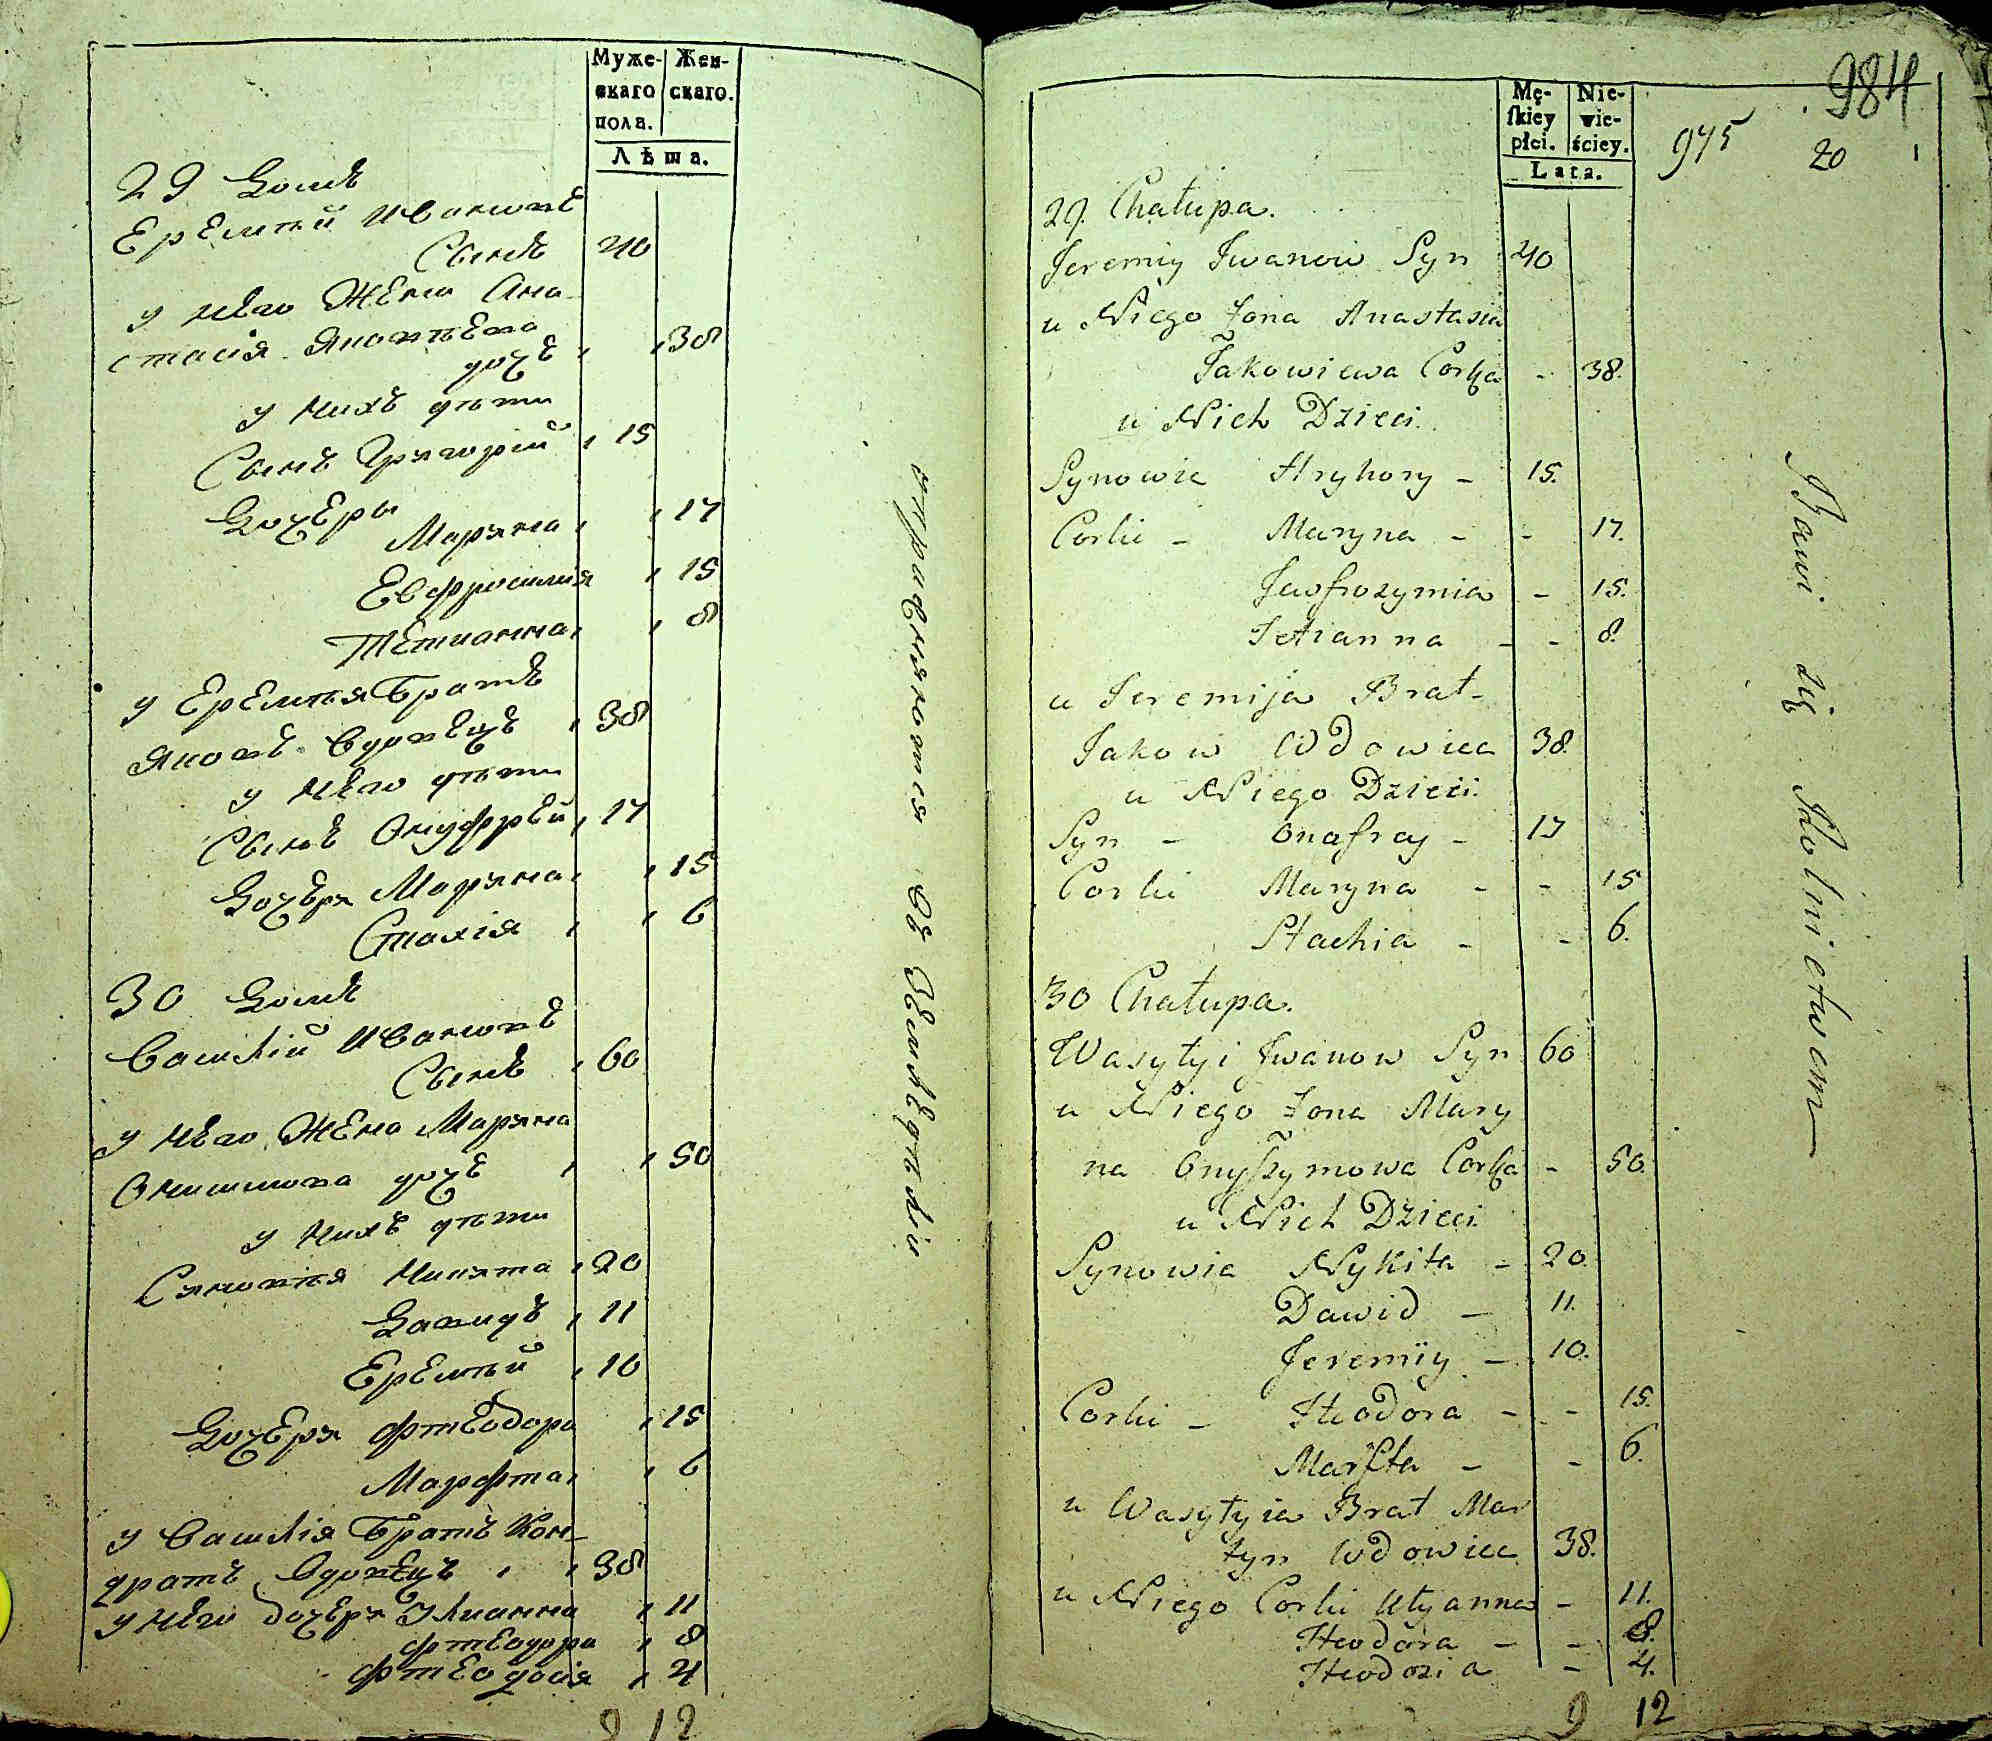 Муже- Жен-
скаго скаго.
пола.
Лѣта.
29 Домъ
Еремѣй Ивановъ
Сынъ 40
у него Жена Ана-
стасія Яковлева
дочь 38
у нихъ дѣти
Сынъ Григорій 15
Дочери
Марина 17
Евфросинія 15
Тетианна 8
у Еремѣя Братъ
Яковъ Вдовецъ 38
у него дѣти
Сынъ Онуфрей 17
Дочери Марина 15
Стахія 6
30 Домъ
Василій Ивановъ
Сынъ 60
у него Жена Марина
Онишкова дочь 50
у нихъ дѣти
Сыновья Никита 20
Давидъ 11
Еремѣй 10
Дочери Фтеодора 15
Марфта 6
у Василія Братъ Кон-
дратъ Вдовецъ 38
у него дочери Улианна 11
Фтеодора 8
Фтеодосія 4
9 12
упражняются въ Земледѣліи
984
975 20
Mę- Nie-
skiey wie-
płci. ściey.
Lata.
29. Chałupa.
Jeremiy Iwanow Syn 40
u Niego Żona Anastasia
Jakowiewa Corka - 38.
u Nich Dzieci.
Synowie Hryhory - 15.
Corki - Maryna - - 17.
Jewfrozymia - 15.
Tetianna - - 8.
u Jeremija Brat-
Jakow Wdowiec 38.
u Niego Dzieci.
Syn - Onofrey - 17
Corki Maryna - - 15
Stachia - - 6.
30 Chałupa.
Wasyłyi Iwanow Syn 60
u Niego Żona Mary
na Onyszymowa Corka - 50.
u Nich Dzieci.
Synowie Nykita - 20.
Dawid - 11.
Jeremiy - 10.
Corki - Fteodora - - 15.
Marfta - - 6.
u Wasyłyia Brat Mar
tyn Wdowiec 38.
u Niego Corki Ulyanna - 11.
Fteodora - - 8.
Fteodozia - 4.
9 12
Bawi się Rolnictwem